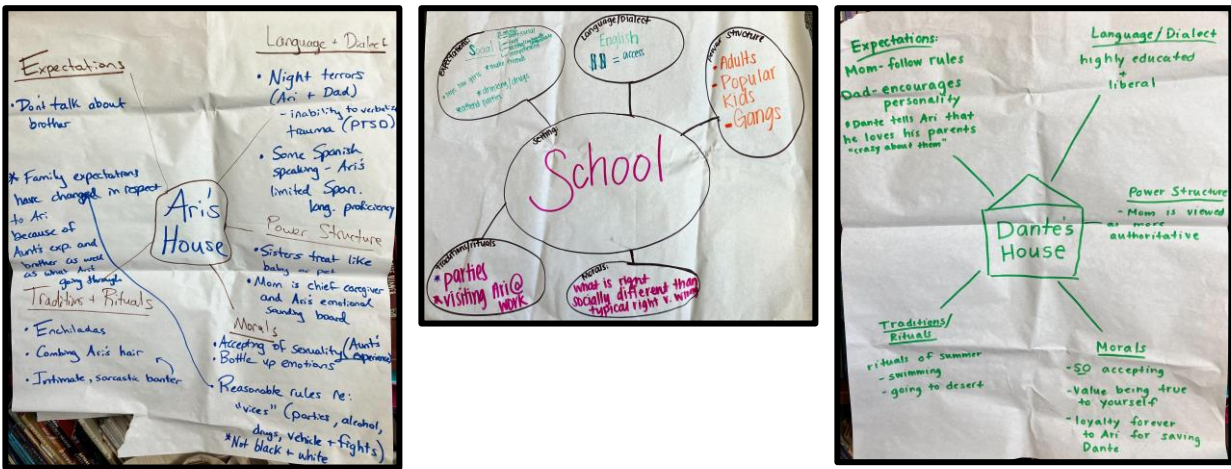 Expectations
• Don't talk about
brother
* Family expectations
have changed in respect
to Ari
because of
Aunt's exp. and
brother as well
as what Ari
going through
Traditins + Rituals
• Enchiladas
• Combing Ari's hair
• Intimate, sarcastic banter
Ari's
House
Language + Dialect
• Night terrors
(Ari + Dad)
- inability to verbalize
trauma (PTSD)
• Some Spanish
speaking - Ari's
limited Span.
lang. proficiency
Power Structure
• Sisters treat like
baby or pet
• Mom is chief caregiver
and Ari's emotional
sounding board
Morals
• Accepting of sexuality (Aunt's
experience)
• Bottle up emotions
• Reasonable rules re:
"vices" (parties, alcohol,
drugs, vehicle + fights)
*Not black + white
Expectations:
Social
* make friends
* drinking/drugs
* attend parties
Language/Dialect
English
= access
Power Structure
• Adults
• Popular
Kids
• Gangs
Setting:
School
Traditions/rituals
* parties
* visiting Ari @
work
Morals:
what is right
socially different than
typical right v. wrong
Expectations:
Mom- follow rules
Dad- encourages
personality
• Dante tells Ari that
he loves his parents
"crazy about them"
Language/Dialect
highly educated
+
liberal
Dante's
House
Power Structure
- Mom is viewed
as more
authoritative
Traditions/
Rituals
rituals of summer
- swimming
- going to desert
Morals
- SO accepting
- Value being true
to yourself
- loyalty forever
to Ari for saving
Dante